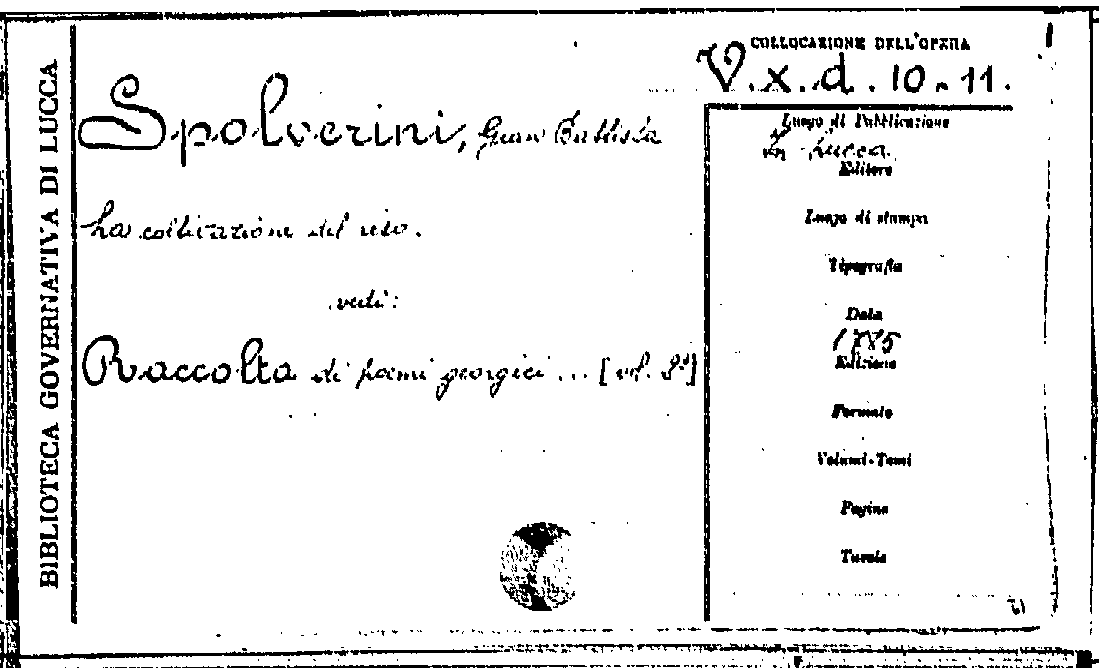 BIBLIOTECA GOVERNATIVA DI LUCCA
COLLOCAZIONE DELL'OPERA
V.x.d.10.11.
Spolverini, Gian Battista
La coltivazione del riso.
vedi:
Raccolta di poemi georgici... [vol. 2º]
Luogo di Pubblicazione
Lucca
Editore
Luogo di stampa
Tipografia
Data
1785
Edizione
Formato
Volumi-Tomi
Pagine
Tavole